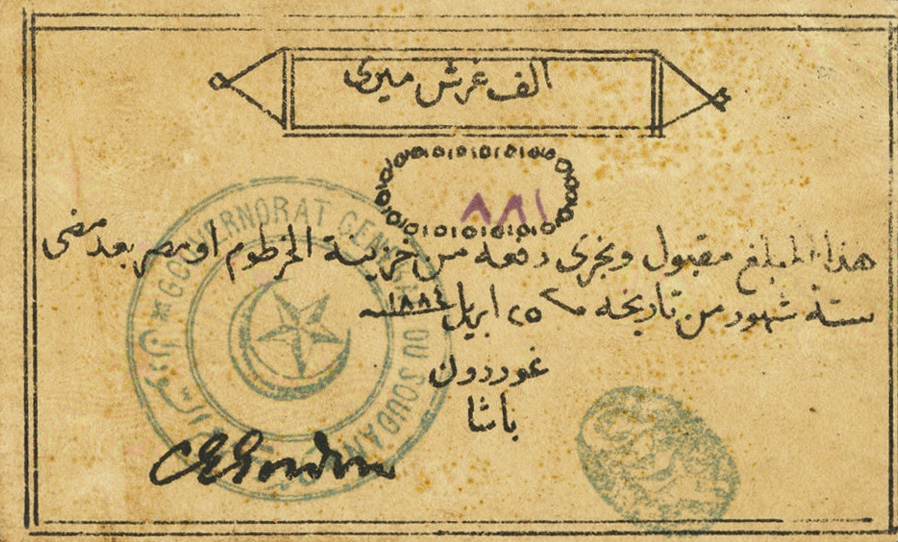 الف غرش ميرى
٨٨١
هذا المبلغ مقبول ويجرى دفعه من خزينة الخرطوم او مصر بعد مضى
ستة شهور من تاريخه ٢٥ ابريل ١٨٨٤
غوردون
باشا
GOUVERNORAT GENERAL DU SOUDAN
C G Gordon